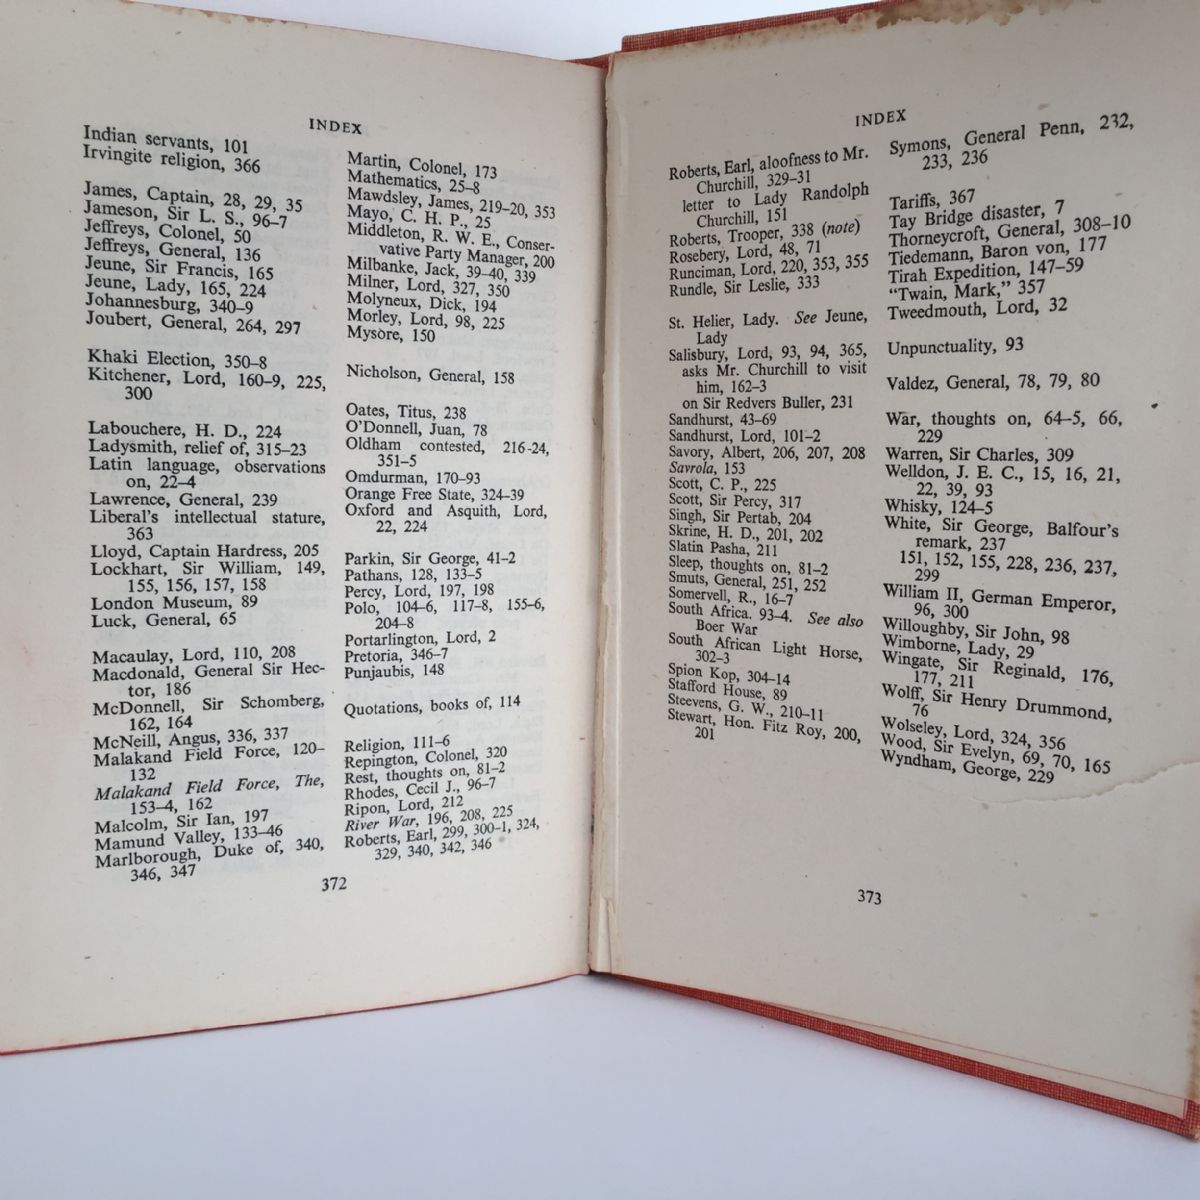 INDEX
Indian servants, 101
Irvingite religion, 366
James, Captain, 28, 29, 35
Jameson, Sir L. S., 96–7
Jeffreys, Colonel, 50
Jeffreys, General, 136
Jeune, Sir Francis, 165
Jeune, Lady, 165, 224
Johannesburg, 340–9
Joubert, General, 264, 297
Khaki Election, 350–8
Kitchener, Lord, 160–9, 225,
300
Labouchere, H. D., 224
Ladysmith, relief of, 315–23
Latin language, observations
on, 22–4
Lawrence, General, 239
Liberal's intellectual stature,
363
Lloyd, Captain Hardress, 205
Lockhart, Sir William, 149,
155, 156, 157, 158
London Museum, 89
Luck, General, 65
Macaulay, Lord, 110, 208
Macdonald, General Sir Hec-
tor, 186
McDonnell, Sir Schomberg,
162, 164
McNeill, Angus, 336, 337
Malakand Field Force, 120–
132
Malakand Field Force, The,
153–4, 162
Malcolm, Sir Ian, 197
Mamund Valley, 133–46
Marlborough, Duke of, 340,
346, 347
Martin, Colonel, 173
Mathematics, 25–8
Mawdsley, James, 219–20, 353
Mayo, C. H. P., 25
Middleton, R. W. E., Conser-
vative Party Manager, 200
Milbanke, Jack, 39–40, 339
Milner, Lord, 327, 350
Molyneux, Dick, 194
Morley, Lord, 98, 225
Mysore, 150
Nicholson, General, 158
Oates, Titus, 238
O'Donnell, Juan, 78
Oldham contested, 216-24,
351–5
Omdurman, 170–93
Orange Free State, 324–39
Oxford and Asquith, Lord,
22, 224
Parkin, Sir George, 41–2
Pathans, 128, 133–5
Percy, Lord, 197, 198
Polo, 104–6, 117–8, 155–6,
204–8
Portarlington, Lord, 2
Pretoria, 346–7
Punjaubis, 148
Quotations, books of, 114
Religion, 111–6
Repington, Colonel, 320
Rest, thoughts on, 81–2
Rhodes, Cecil J., 96–7
Ripon, Lord, 212
River War, 196, 208, 225
Roberts, Earl, 299, 300–1, 324,
329, 340, 342, 346
372
INDEX
Roberts, Earl, aloofness to Mr.
Churchill, 329–31
letter to Lady Randolph
Churchill, 151
Roberts, Trooper, 338 (note)
Rosebery, Lord, 48, 71
Runciman, Lord, 220, 353, 355
Rundle, Sir Leslie, 333
St. Helier, Lady. See Jeune,
Lady
Salisbury, Lord, 93, 94, 365,
asks Mr. Churchill to visit
him, 162–3
on Sir Redvers Buller, 231
Sandhurst, 43–69
Sandhurst, Lord, 101–2
Savory, Albert, 206, 207, 208
Savrola, 153
Scott, C. P., 225
Scott, Sir Percy, 317
Singh, Sir Pertab, 204
Skrine, H. D., 201, 202
Slatin Pasha, 211
Sleep, thoughts on, 81–2
Smuts, General, 251, 252
Somervell, R., 16–7
South Africa. 93–4. See also
Boer War
South African Light Horse,
302–3
Spion Kop, 304–14
Stafford House, 89
Steevens, G. W., 210–11
Stewart, Hon. Fitz Roy, 200,
201
Symons, General Penn, 232,
233, 236
Tariffs, 367
Tay Bridge disaster, 7
Thorneycroft, General, 308–10
Tiedemann, Baron von, 177
Tirah Expedition, 147–59
"Twain, Mark," 357
Tweedmouth, Lord, 32
Unpunctuality, 93
Valdez, General, 78, 79, 80
War, thoughts on, 64–5, 66,
229
Warren, Sir Charles, 309
Welldon, J. E. C., 15, 16, 21,
22, 39, 93
Whisky, 124–5
White, Sir George, Balfour's
remark, 237
151, 152, 155, 228, 236, 237,
299
William II, German Emperor,
96, 300
Willoughby, Sir John, 98
Wimborne, Lady, 29
Wingate, Sir Reginald, 176,
177, 211
Wolff, Sir Henry Drummond,
76
Wolseley, Lord, 324, 356
Wood, Sir Evelyn, 69, 70, 165
Wyndham, George, 229
373